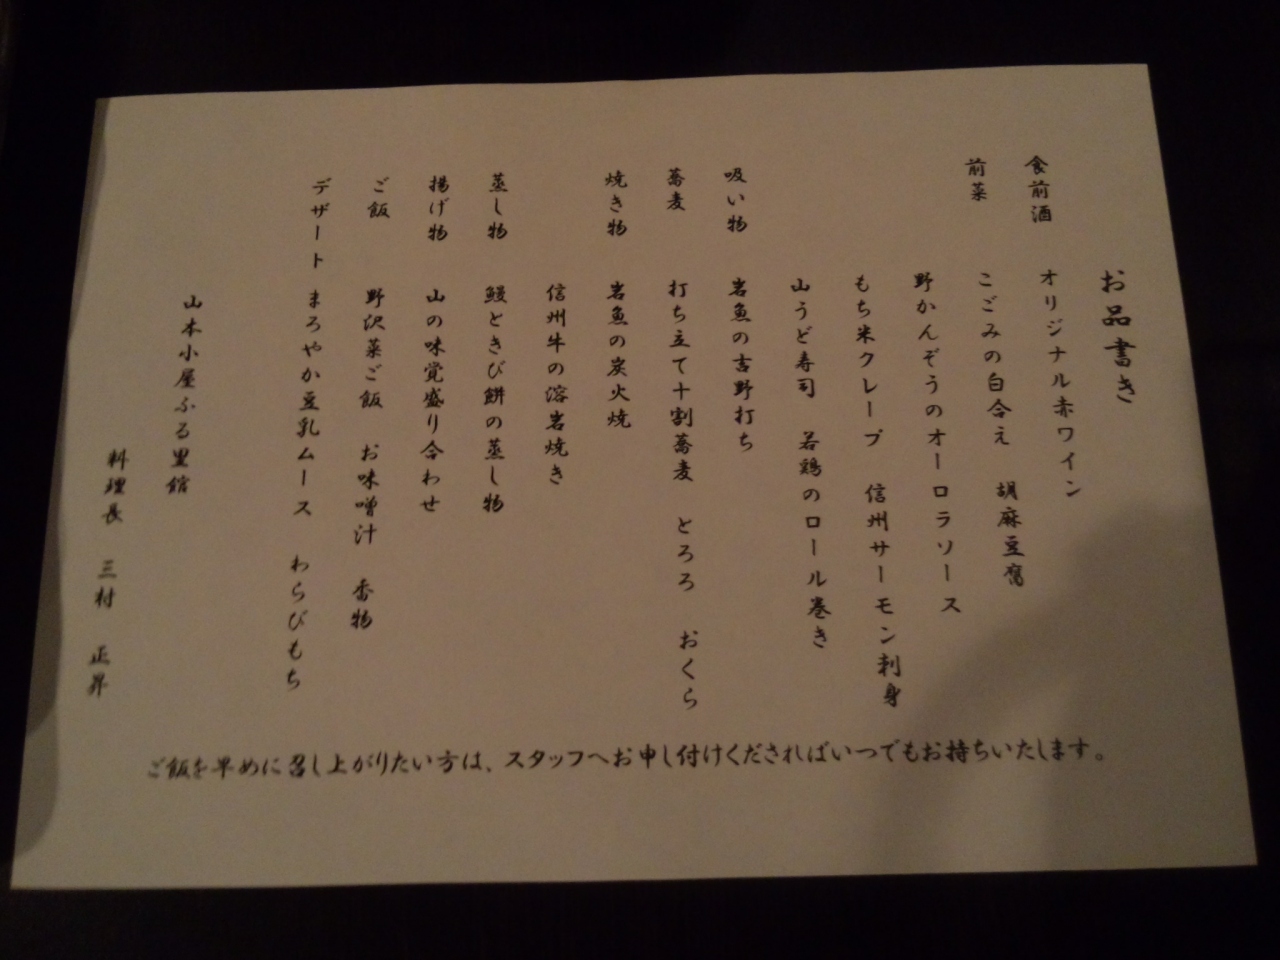 お品書き
食前酒 オリジナル赤ワイン
前菜 こごみの白合え 胡麻豆腐
野かんぞうのオーロラソース
もち米クレープ 信州サーモン刺身
山うど寿司 若鶏のロール巻き
吸い物 岩魚の吉野打ち
蕎麦 打ち立て十割蕎麦 とろろ おくら
焼き物 岩魚の炭火焼
信州牛の溶岩焼き
蒸し物 鰻ときび餅の蒸し物
揚げ物 山の味覚盛り合わせ
ご飯 野沢菜ご飯 お味噌汁 香物
デザート まろやか豆乳ムース わらびもち
山本小屋ふる里館
料理長 三村 正昇
ご飯を早めに召し上がりたい方は、スタッフへお申し付けくださればいつでもお持ちいたします。